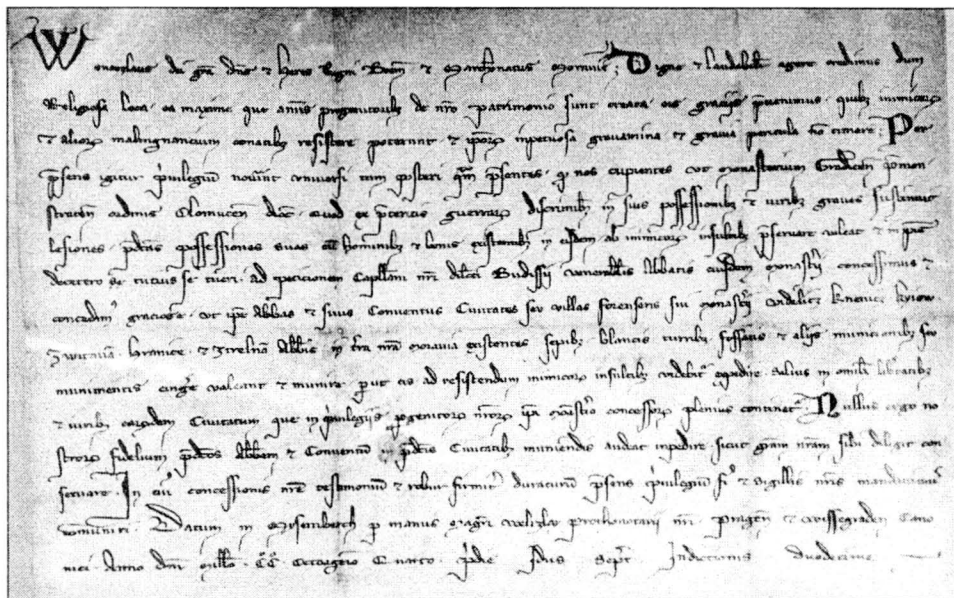 Wenceslaus dei gra dns & heres Regni Boem & Marchionatus Moravie; Digne & laudabiliter agere credimus dum
Religiosa loca ea maxime que a progenitoribz de nro patrimonio sunt creata eis graciis quibz inimicorz
& aliorz malingnancium conatibz resistere poterunt & ipsorz inpetuosa gravamina & gravia pericula non timere; Per
psens igitur privilegium noverint universi tam posteri qm psentes q nos cupientes ut monasterium Gradicen premon
straten ordinis Olomucen dioc quod ex guerrarz in suis possessionibz & iuribz graves sustinuit
lesiones pdictas possessiones suas hominibz & bonis existentibz in eisdem ab inimicorz insultibz pservare valeat & in
de cetero se tucius se tueri ad peticionem Capllani nri dilecti Budissii venerabilis Abbatis eiusdem monasterii concessimus &
graciose ut ipse Abbas & suus Conventus Civitates seu villas forenses sui monasterii videlicet
Zwitavia Hranice & Abbis in terra nra Moravia existentes sepibz blancis turribz fossatis & aliis municionibz seu
munimentis valeant & munire put eis ad resistendum inimicorz insultibz videbitur expedire salvis in omibz libertatibz
& iuribz earundem Civitatum que in privilegiis progenitorz nrorz ipi monasterio concessorz plenius continetur Nullus ergo no
strorz fidelium pdictos Abbem & Conventum in pdictis Civitatibz muniendis audeat inpedire sicut gram nram sibi diligit con
servare In cuius concessionis nre testimonium & robur firmiter duraturum psens privilegium & sigillis nris
communiri Datum in p manus Magri Welizlai Prothonotarii nri Pragen & Wissegraden Cano
nici Anno dni millo CC Octuagesimo Quarto pridie Idus Sept Indictionis duodecime